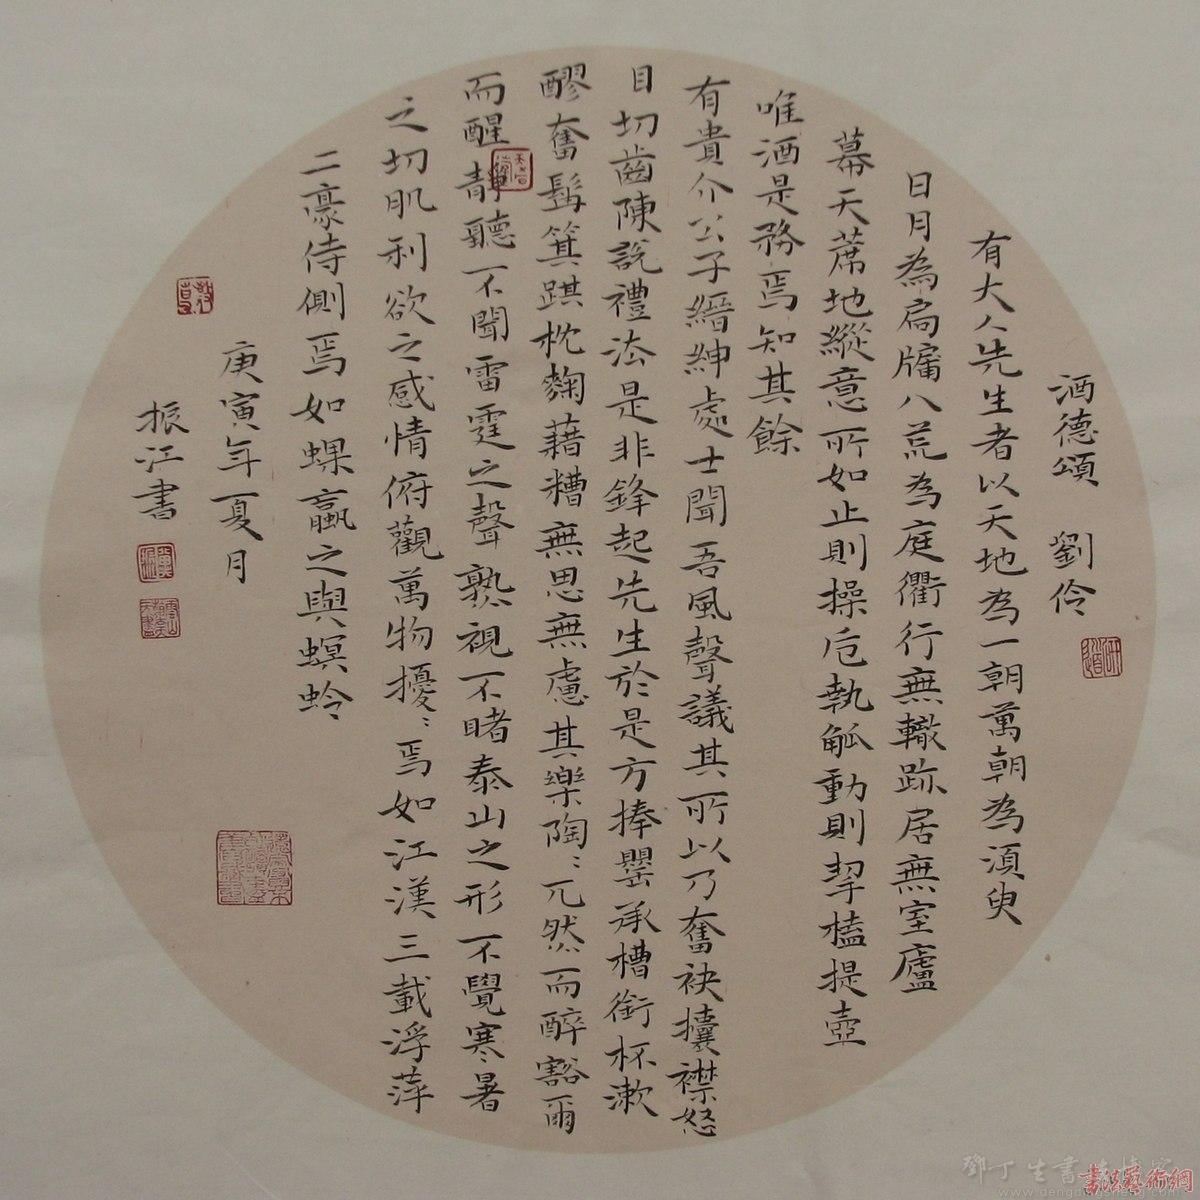 酒德頌 劉伶
有大人先生者以天地為一朝萬朝為須臾
日月為扃牖八荒為庭衢行無轍跡居無室廬
幕天蓆地縱意所如止則操卮執觚動則挈榼提壺
唯酒是務焉知其餘
有貴介公子縉紳處士聞吾風聲議其所以乃奮袂攘襟怒
目切齒陳說禮法是非鋒起先生於是方捧罌承槽銜杯漱
醪奮髯箕踑枕麴藉糟無思無慮其樂陶〻兀然而醉豁爾
而醒靜聽不聞雷霆之聲熟視不睹泰山之形不覺寒暑
之切肌利欲之感情俯觀萬物擾〻焉如江漢三載浮萍
二豪侍側焉如蜾蠃之與螟蛉
庚寅年夏月
振江書
書法藝術網